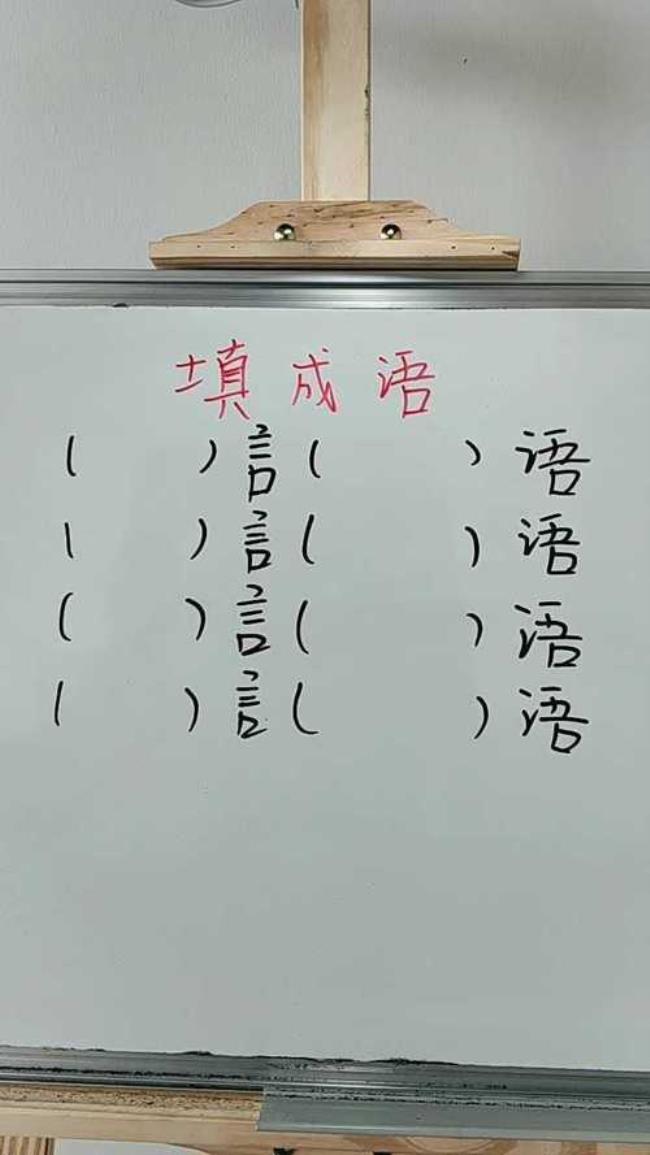 填成语
( )言( )语
( )言( )语
( )言( )语
( )言( )语